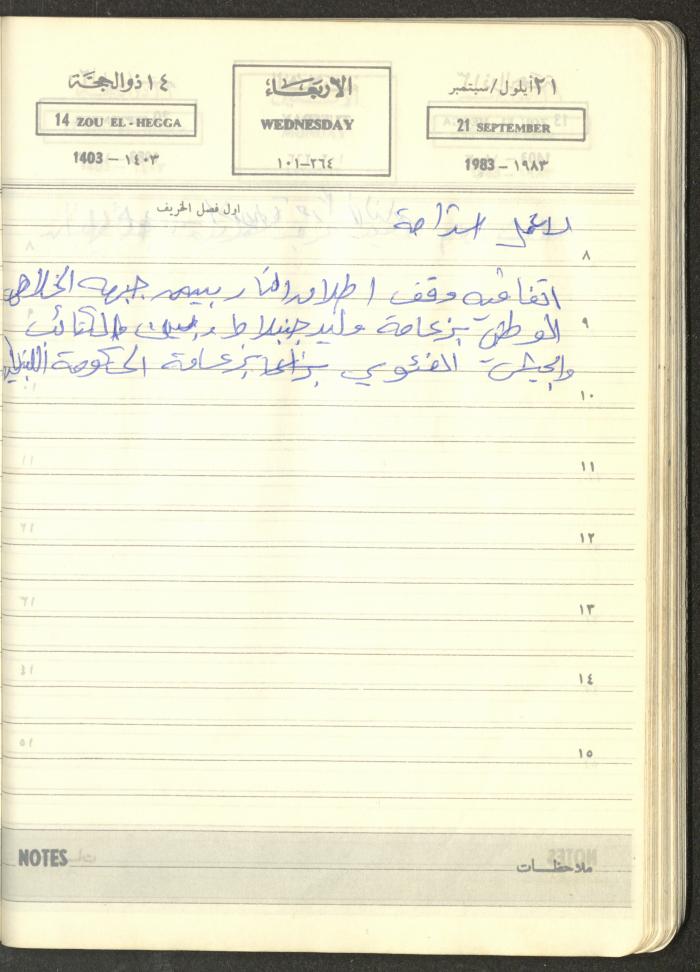 ١٤ ذو الحجّة
14 ZOU EL-HEGGA
١٤٠٣ – 1403
الأربعاء
WEDNESDAY
٢٦٤-١٠١
٢١ أيلول/سبتمبر
21 SEPTEMBER
١٩٨٣ – 1983
اول فصل الخريف
لا عمل استراحة
٨
اتفاقية وقف اطلاق النار بين جبهة الخلاص
٩
الوطني بزعامة وليد جنبلاط وبين الكتائب
والجيش الفئوي بزعامة الحكومة اللبنانية
١٠
١١
١٢
١٣
١٤
١٥
NOTES
ملاحظات